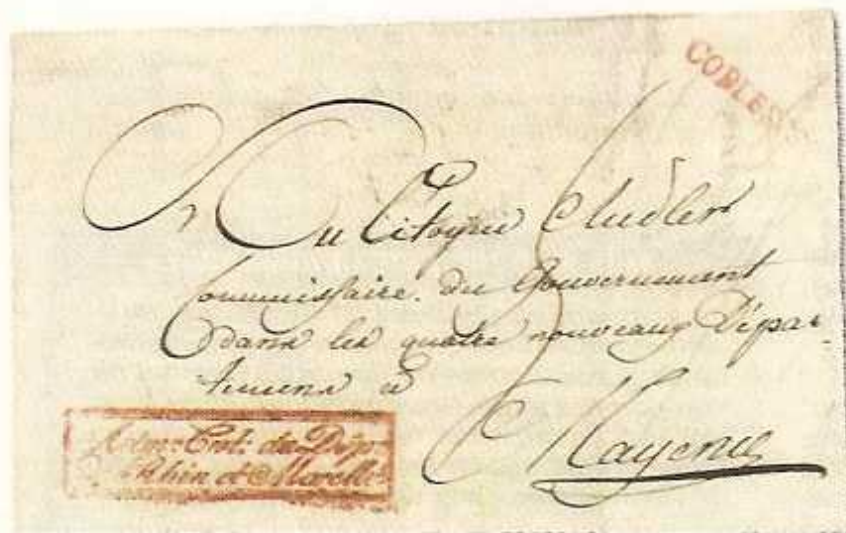 COBLEN
Au Citoyen Rudler
Commissaire du Gouvernement
dans les quatre nouveaux Dépar-
temens à
Mayence
Adm: Cnt: du Dép:
Rhin et Moselle